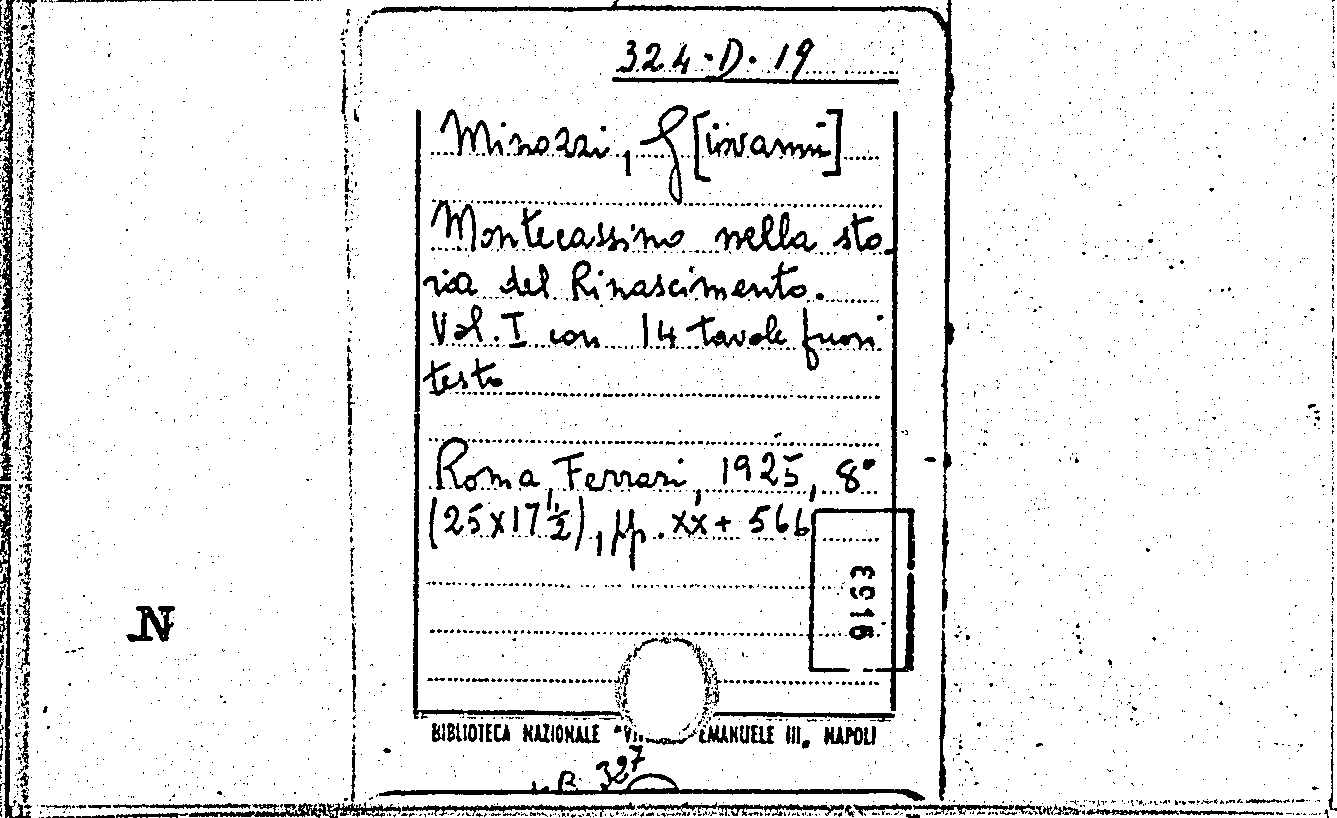 324.D.19
Minozzi, G[iovanni]
Montecassino nella sto-
ria del Rinascimento.
Vol. I con 14 tavole fuori
testo
Roma, Ferrari, 1925, 8°
(25x17½), pp. xx + 566
E916
N
BIBLIOTECA NAZIONALE EMANUELE III, NAPOLI
327